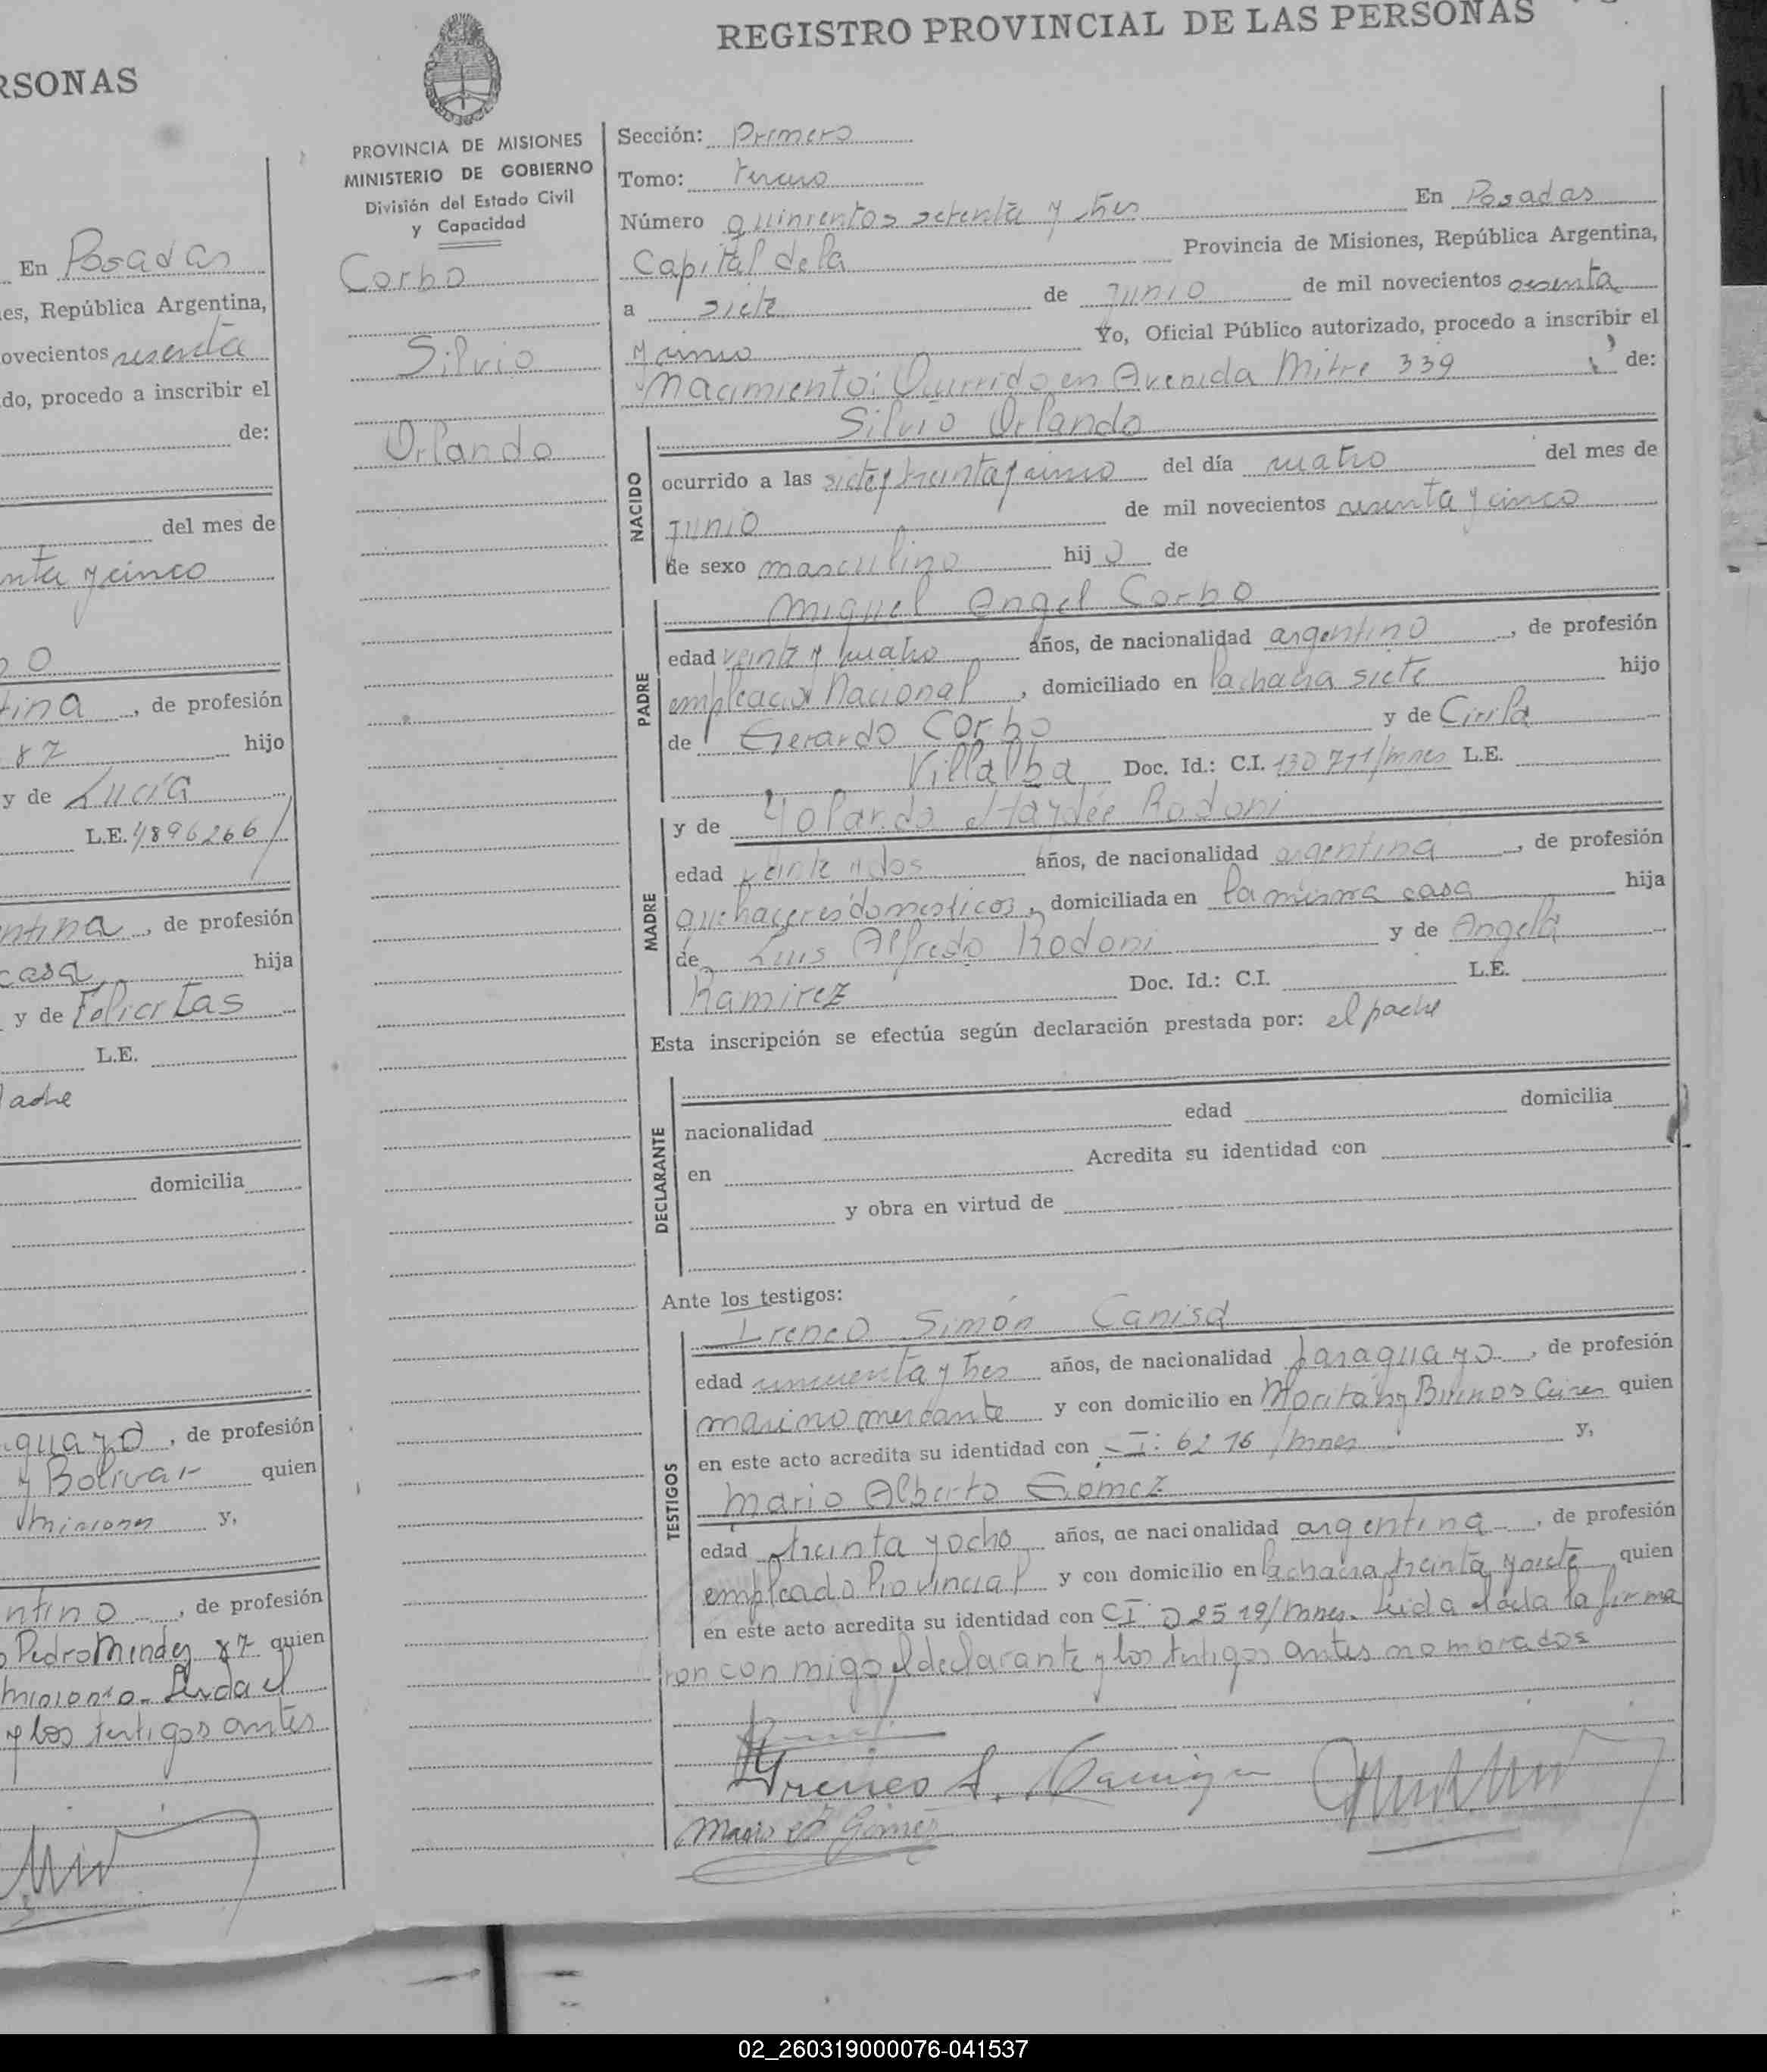 RSONAS
En Posadas
es, República Argentina,
ovecientos sesenta
do, procedo a inscribir el
de:
del mes de
nta y cinco
o
tina, de profesión
87 hijo
y de Lucía
L.E. 4896266
ntina, de profesión
casa hija
y de Felicitas
L.E.
adre
domicilia
guayo, de profesión
y Bolivar quien
misiones y,
ntino, de profesión
o Pedro Mendez 87 quien
misiones. Leida el
y los testigos antes
PROVINCIA DE MISIONES
MINISTERIO DE GOBIERNO
División del Estado Civil
y Capacidad
Corbo
Silvio
Orlando
REGISTRO PROVINCIAL DE LAS PERSONAS
Sección: Primera
Tomo: tercero
Número quinientos setenta y tres En Posadas
Capital de la Provincia de Misiones, República Argentina,
a siete de junio de mil novecientos sesenta
y cinco Yo, Oficial Público autorizado, procedo a inscribir el
nacimiento: Ocurrido en Avenida Mitre 339 de:
Silvio Orlando
NACIDO
ocurrido a las siete y treinta y cinco del día cuatro del mes de
junio de mil novecientos sesenta y cinco
de sexo masculino hijo de
PADRE
Miguel Angel Corbo
edad veinte y cuatro años, de nacionalidad argentino, de profesión
empleado Nacional, domiciliado en la chacra siete hijo
de Gerardo Corbo y de Cirila
Villalba Doc. Id.: C.I. 130711/mnes L.E.
MADRE
y de Yolanda Haydée Rodoni
edad veinte y dos años, de nacionalidad argentina, de profesión
quehaceres domesticos, domiciliada en la misma casa hija
de Luis Alfredo Rodoni y de Angela
Ramirez Doc. Id.: C.I. L.E.
Esta inscripción se efectúa según declaración prestada por: el padre
DECLARANTE
nacionalidad edad domicilia
en Acredita su identidad con
y obra en virtud de
Ante los testigos:
TESTIGOS
Ireneo Simón Canisa
edad cincuenta y tres años, de nacionalidad paraguayo, de profesión
marino mercante y con domicilio en Moritán y Buenos Aires quien
en este acto acredita su identidad con C.I: 6216/mnes y,
Mario Alberto Gomez
edad treinta y ocho años, de nacionalidad argentina, de profesión
empleado Provincial y con domicilio en la chacra treinta y siete quien
en este acto acredita su identidad con C.I: 02519/mnes. Leida el acta la firma
ron con migo el declarante y los testigos antes nombrados
Ireneo S.
Mario A Gomez
02_260319000076-041537